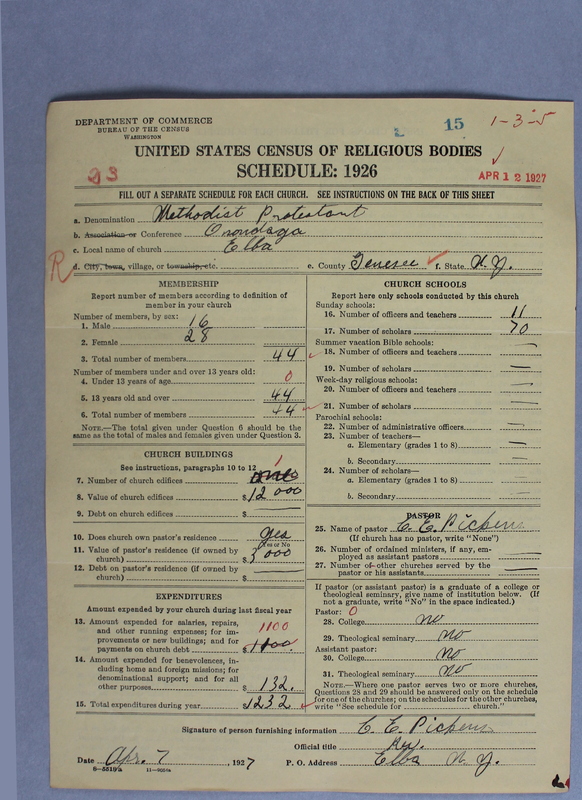 DEPARTMENT OF COMMERCE
BUREAU OF THE CENSUS
WASHINGTON
15
1-3-5
UNITED STATES CENSUS OF RELIGIOUS BODIES
SCHEDULE: 1926
APR 12 1927
FILL OUT A SEPARATE SCHEDULE FOR EACH CHURCH. SEE INSTRUCTIONS ON THE BACK OF THIS SHEET
a. Denomination Methodist Protestant
b. Association or Conference Onondaga
c. Local name of church Elba
R
d. City, town, village, or township, etc.
e. County Genesee
f. State N. Y.
MEMBERSHIP
Report number of members according to definition of member in your church
Number of members, by sex:
1. Male 16
2. Female 28
3. Total number of members 44
Number of members under and over 13 years old:
4. Under 13 years of age 0
5. 13 years old and over 44
6. Total number of members 44
NOTE.—The total given under Question 6 should be the same as the total of males and females given under Question 3.
CHURCH BUILDINGS
See instructions, paragraphs 10 to 12
7. Number of church edifices one 1
8. Value of church edifices $12000
9. Debt on church edifices $ —
10. Does church own pastor's residence? yes
Yes or No
11. Value of pastor's residence (if owned by church) $ 000
12. Debt on pastor's residence (if owned by church) —
EXPENDITURES
Amount expended by your church during last fiscal year
13. Amount expended for salaries, repairs, and other running expenses; for improvements or new buildings; and for payments on church debt $ 1100
14. Amount expended for benevolences, including home and foreign missions; for denominational support; and for all other purposes $ 132.
15. Total expenditures during year $1232
CHURCH SCHOOLS
Report here only schools conducted by this church
Sunday schools:
16. Number of officers and teachers 11
17. Number of scholars 70
Summer vacation Bible schools:
18. Number of officers and teachers —
19. Number of scholars —
Week-day religious schools:
20. Number of officers and teachers —
21. Number of scholars —
Parochial schools:
22. Number of administrative officers —
23. Number of teachers—
a. Elementary (grades 1 to 8) —
b. Secondary —
24. Number of scholars—
a. Elementary (grades 1 to 8) —
b. Secondary —
PASTOR
25. Name of pastor C. E. Pickens
(If church has no pastor, write "None")
26. Number of ordained ministers, if any, employed as assistant pastors —
27. Number of other churches served by the pastor or his assistants —
If pastor (or assistant pastor) is a graduate of a college or theological seminary, give name of institution below. (If not a graduate, write "No" in the space indicated.)
Pastor: 0
28. College no
29. Theological seminary no
Assistant pastor:
30. College no
31. Theological seminary no
NOTE.—Where one pastor serves two or more churches, Questions 28 and 29 should be answered only on the schedule for one of the churches; on the schedules for the other churches, write "See schedule for ______ church."
Signature of person furnishing information C. E. Pickens
Official title Rev.
Date Apr. 7, 1927
P. O. Address Elba N. Y.